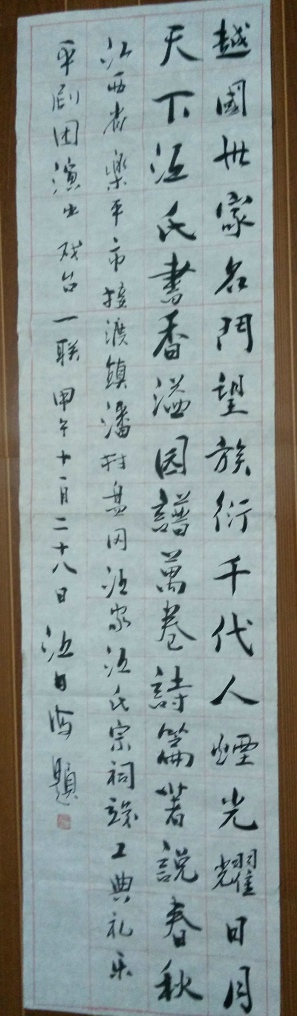 越國世家名門望族衍千代人煙光耀日月
天下汪氏書香溢園譜萬卷詩篇著說春秋
江西省樂平市接渡鎮潘村盘因汪家汪氏宗祠竣工典礼乐
平剧团演出戏台一联 甲午十一月二十八日 汪日海 題